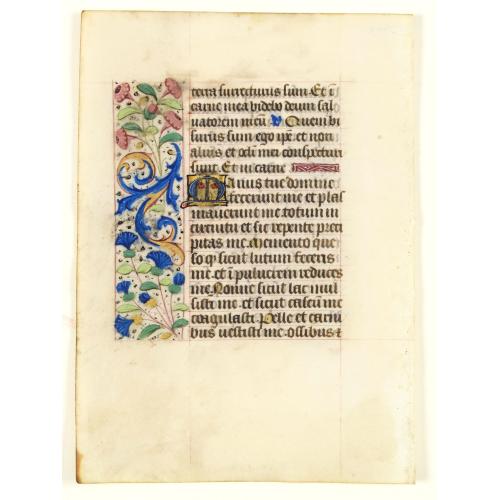 terra surrecturus sum. Et i
carne mea videbo deum sal
vatorem meu. V Quem vi
surus sum ego ipe et non
alius et oculi mei conspecturi
sunt. Et in carne
Manus tue domine
fecerunt me et plas
maverunt me totum in
circuitu et sic repente preci
pitas me. Memento que
so q sicut lutum feceris
me et i pulverem reduces
me. Nonne sicut lac mul
sisti me et sicut caseum me
coagulasti. Pelle et carni
bus vestisti me ossibus et